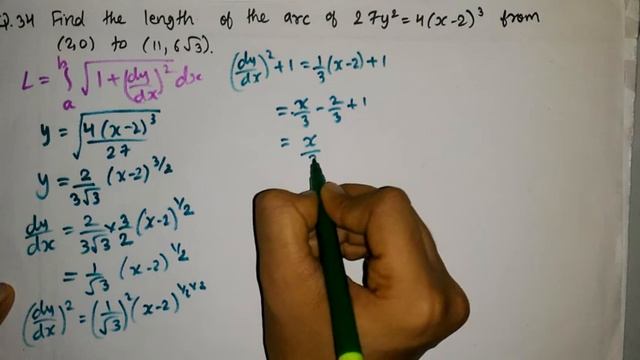 Q.34 Find the length of the arc of 27y² = 4(x-2)³ from
(2,0) to (11, 6√3).
L = ∫ₐᵇ √(1+(dy/dx)²) dx
y = √(4(x-2)³/27)
y = 2/(3√3) (x-2)^(3/2)
dy/dx = 2/(3√3) × 3/2 (x-2)^(1/2)
= 1/√3 (x-2)^(1/2)
(dy/dx)² = (1/√3)² (x-2)^(1/2×2)
(dy/dx)² + 1 = 1/3 (x-2) + 1
= x/3 - 2/3 + 1
= x/3